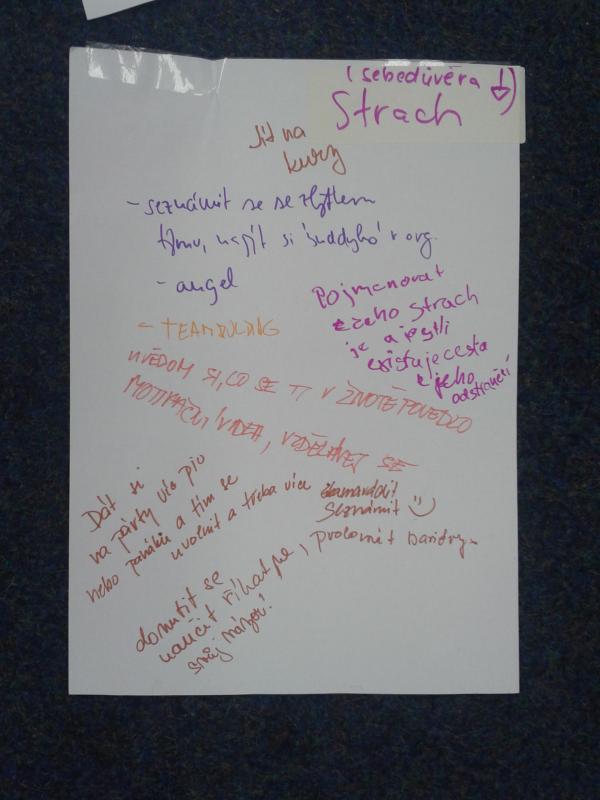 (sebedůvěra ↓)
Strach
Jít na
kurzy
- seznámit se se zbytkem
týmu, najít si buddyho v org.
- angel
Pojmenovat
z čeho strach
je a jestli
existuje cesta
k jeho
odstranění
- TEAMBUILDING
UVĚDOM SI, CO SE TI V ŽIVOTĚ POVEDLO
MOTIVAČNÍ VIDEA, VZDĚLÁVEJ SE
Dát si
na párty víc piv
nebo panáků a tím se
uvolnit a třeba více
Seznámit :)
prolomit bariéry.
donutit se
naučit říkat ne,
svůj názor!